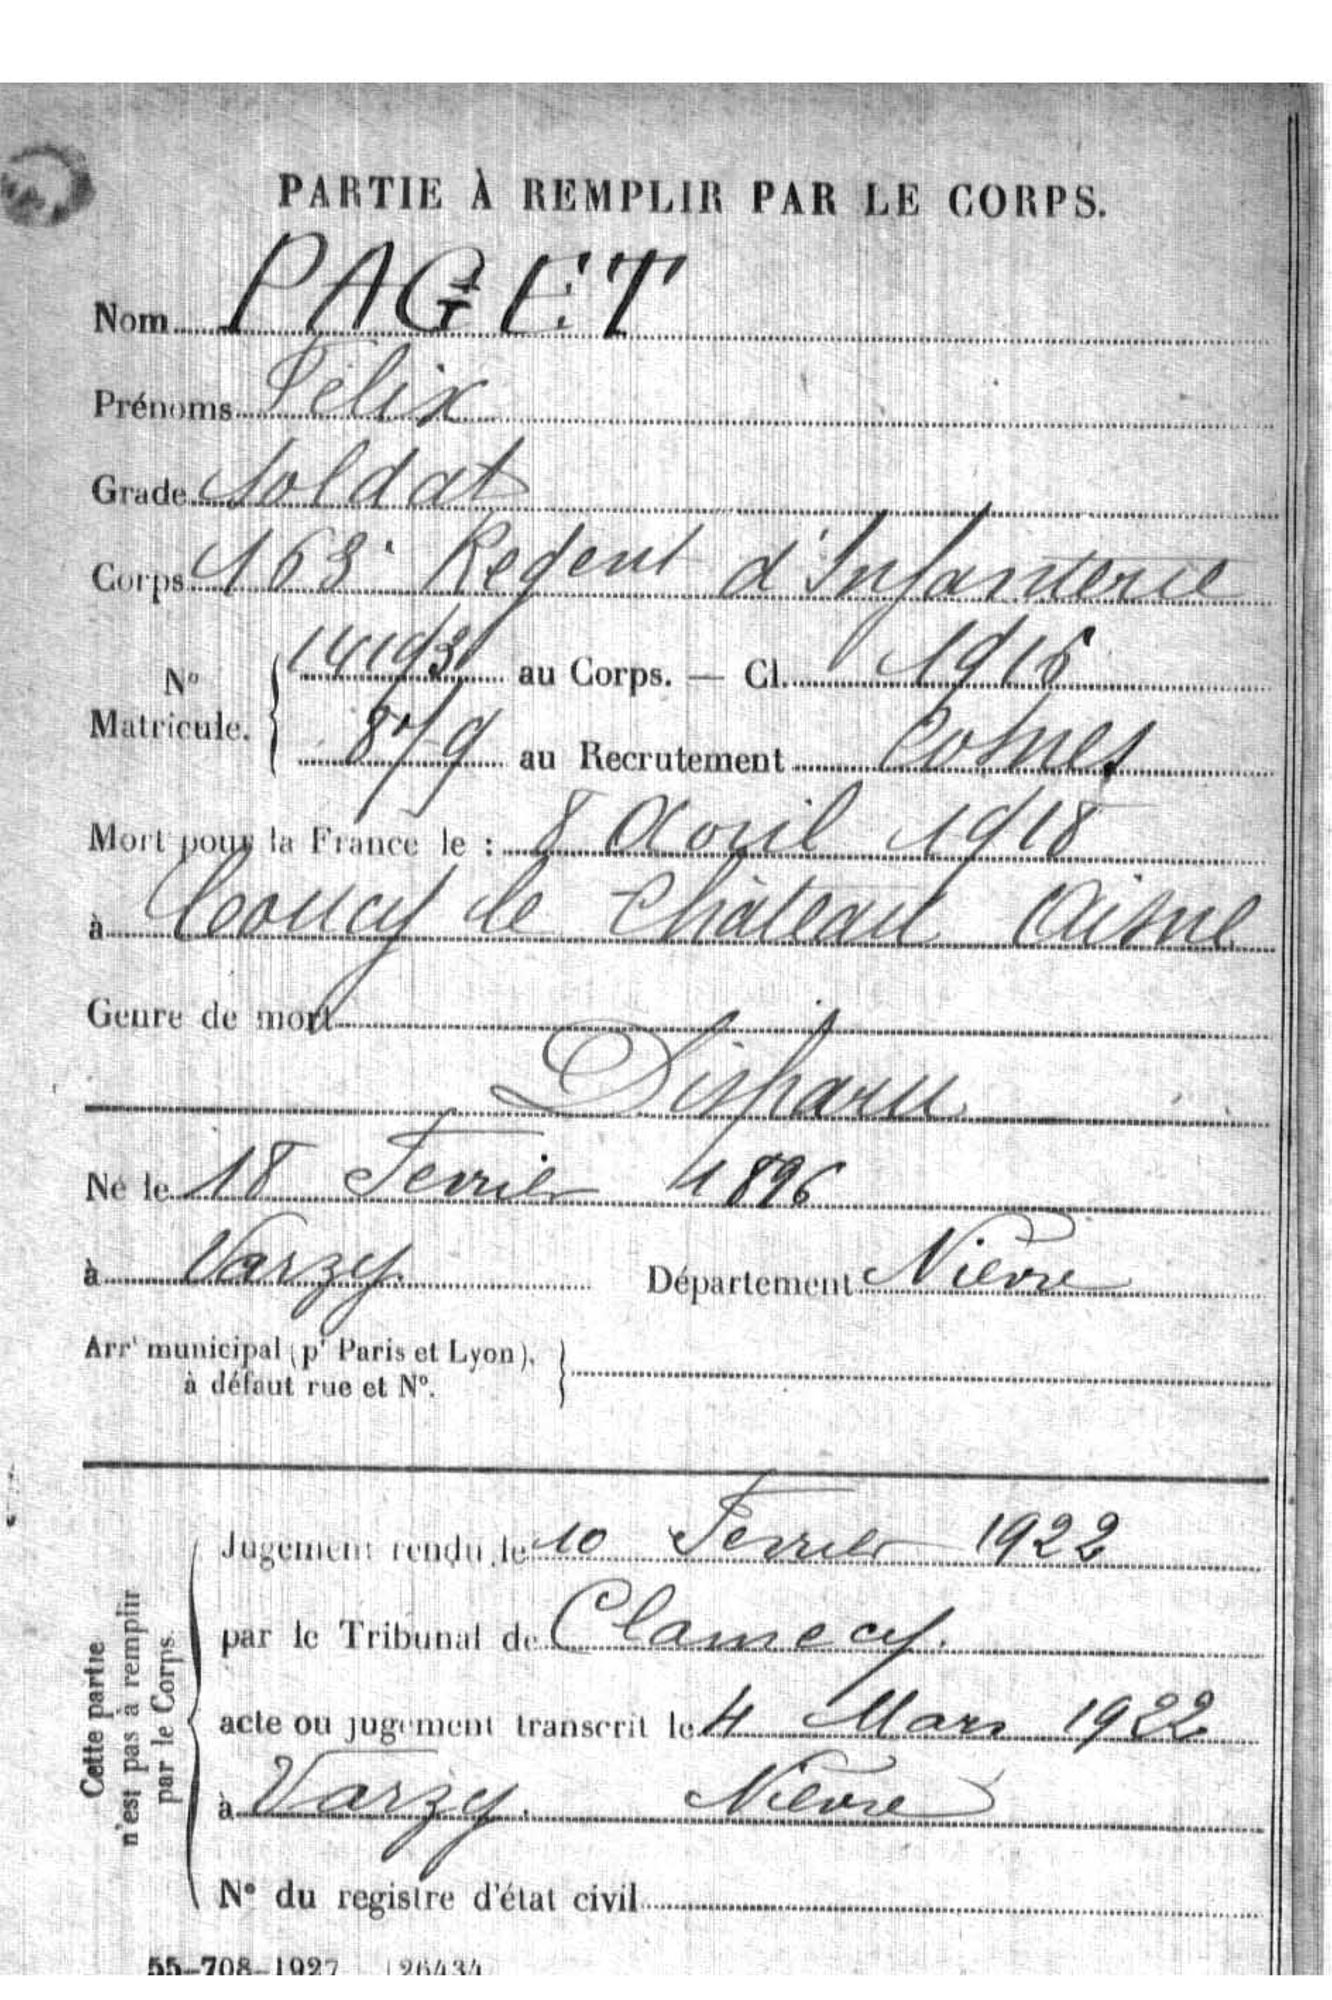 PARTIE À REMPLIR PAR LE CORPS.
Nom PAGET
Prénoms Félix
Grade Soldat
Corps 163e Regent d'Infanterie
N° Matricule. 14193 au Corps. — Cl. 1916
au Recrutement Cosnes
Mort pour la France le : 8 Avril 1918
à Coucy le Château Aisne
Genre de mort
Disparu
Né le 18 Fevrier 1896
à Varzy. Département Nièvre
Arrt municipal (pr Paris et Lyon),
à défaut rue et N°.
Cette partie
n'est pas à remplir
par le Corps.
Jugement rendu le 10 Fevrier 1922
par le Tribunal de Clamecy.
acte ou jugement transcrit le 4 Mars 1922
à Varzy. Nièvre
N° du registre d'état civil
55-708-1927. [26434.